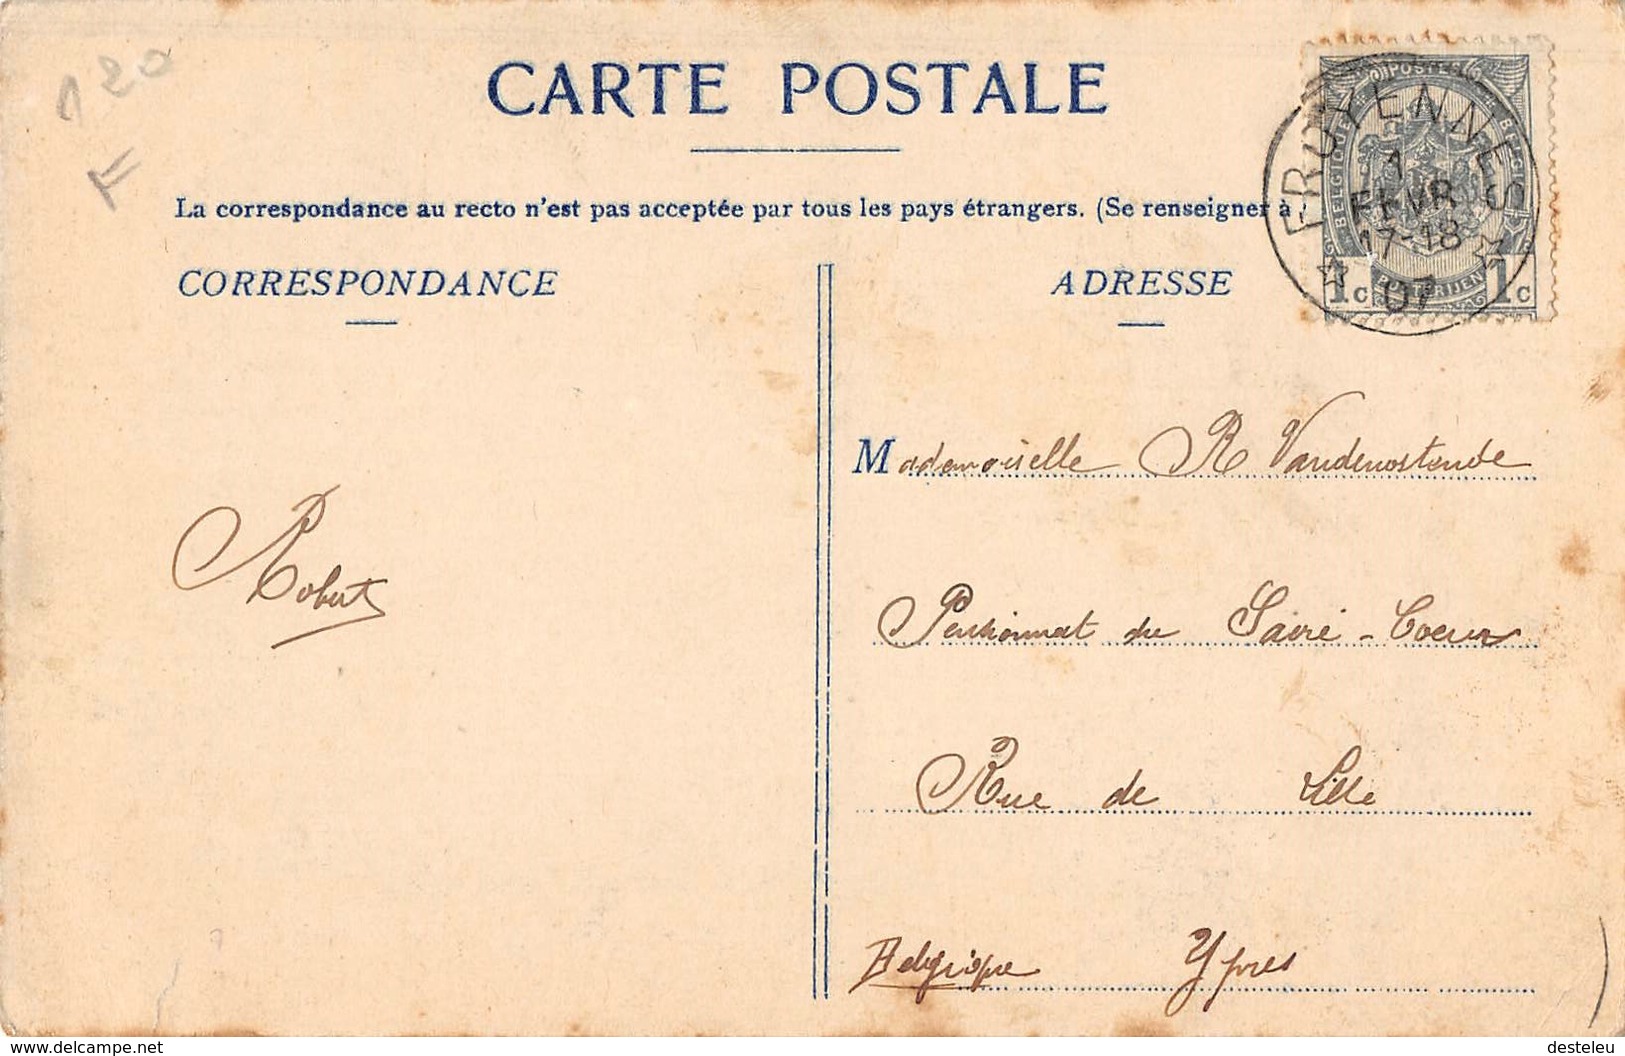 120
F
CARTE POSTALE
La correspondance au recto n'est pas acceptée par tous les pays étrangers. (Se renseigner à
CORRESPONDANCE
ADRESSE
POSTE
BELGIQUE
BELGIË
POSTERIJEN
1c 1c
FROYENNES
1
FEVR
17-18
07
Mademoiselle R Vandenostende
Pensionnat du Sacré-Coeur
Rue de Lille
Belgique Ypres
Robert
delcampe.net
desteleu